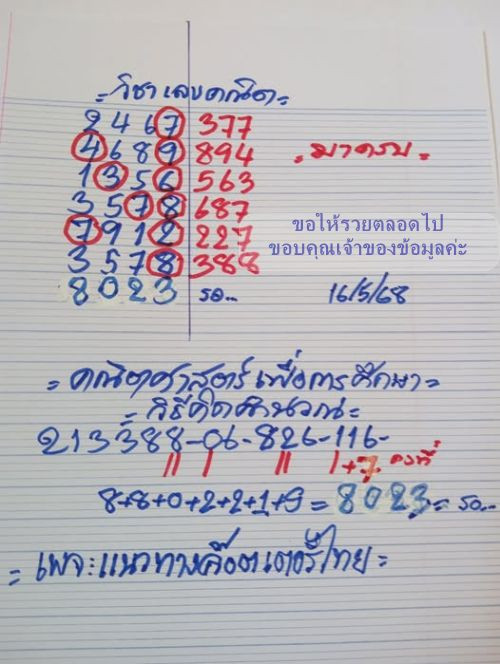 = วิชาเลขคณิต =
2467 377
4689 894
1356 563
3578 687
7912 227
3578 388
8023 รอ...
= มาครบ =
ขอให้รวยตลอดไป
ขอบคุณเจ้าของข้อมูลค่ะ
16/5/68
= คณิตศาสตร์เพื่อการศึกษา =
= วิธีคิดคำนวณ =
213388-06-826-116-
1+7 คงที่
8+8+0+2+2+1+9 = 8023 = รอ...
= เพจ: แนวทางคือตเตอรี่ไทย =